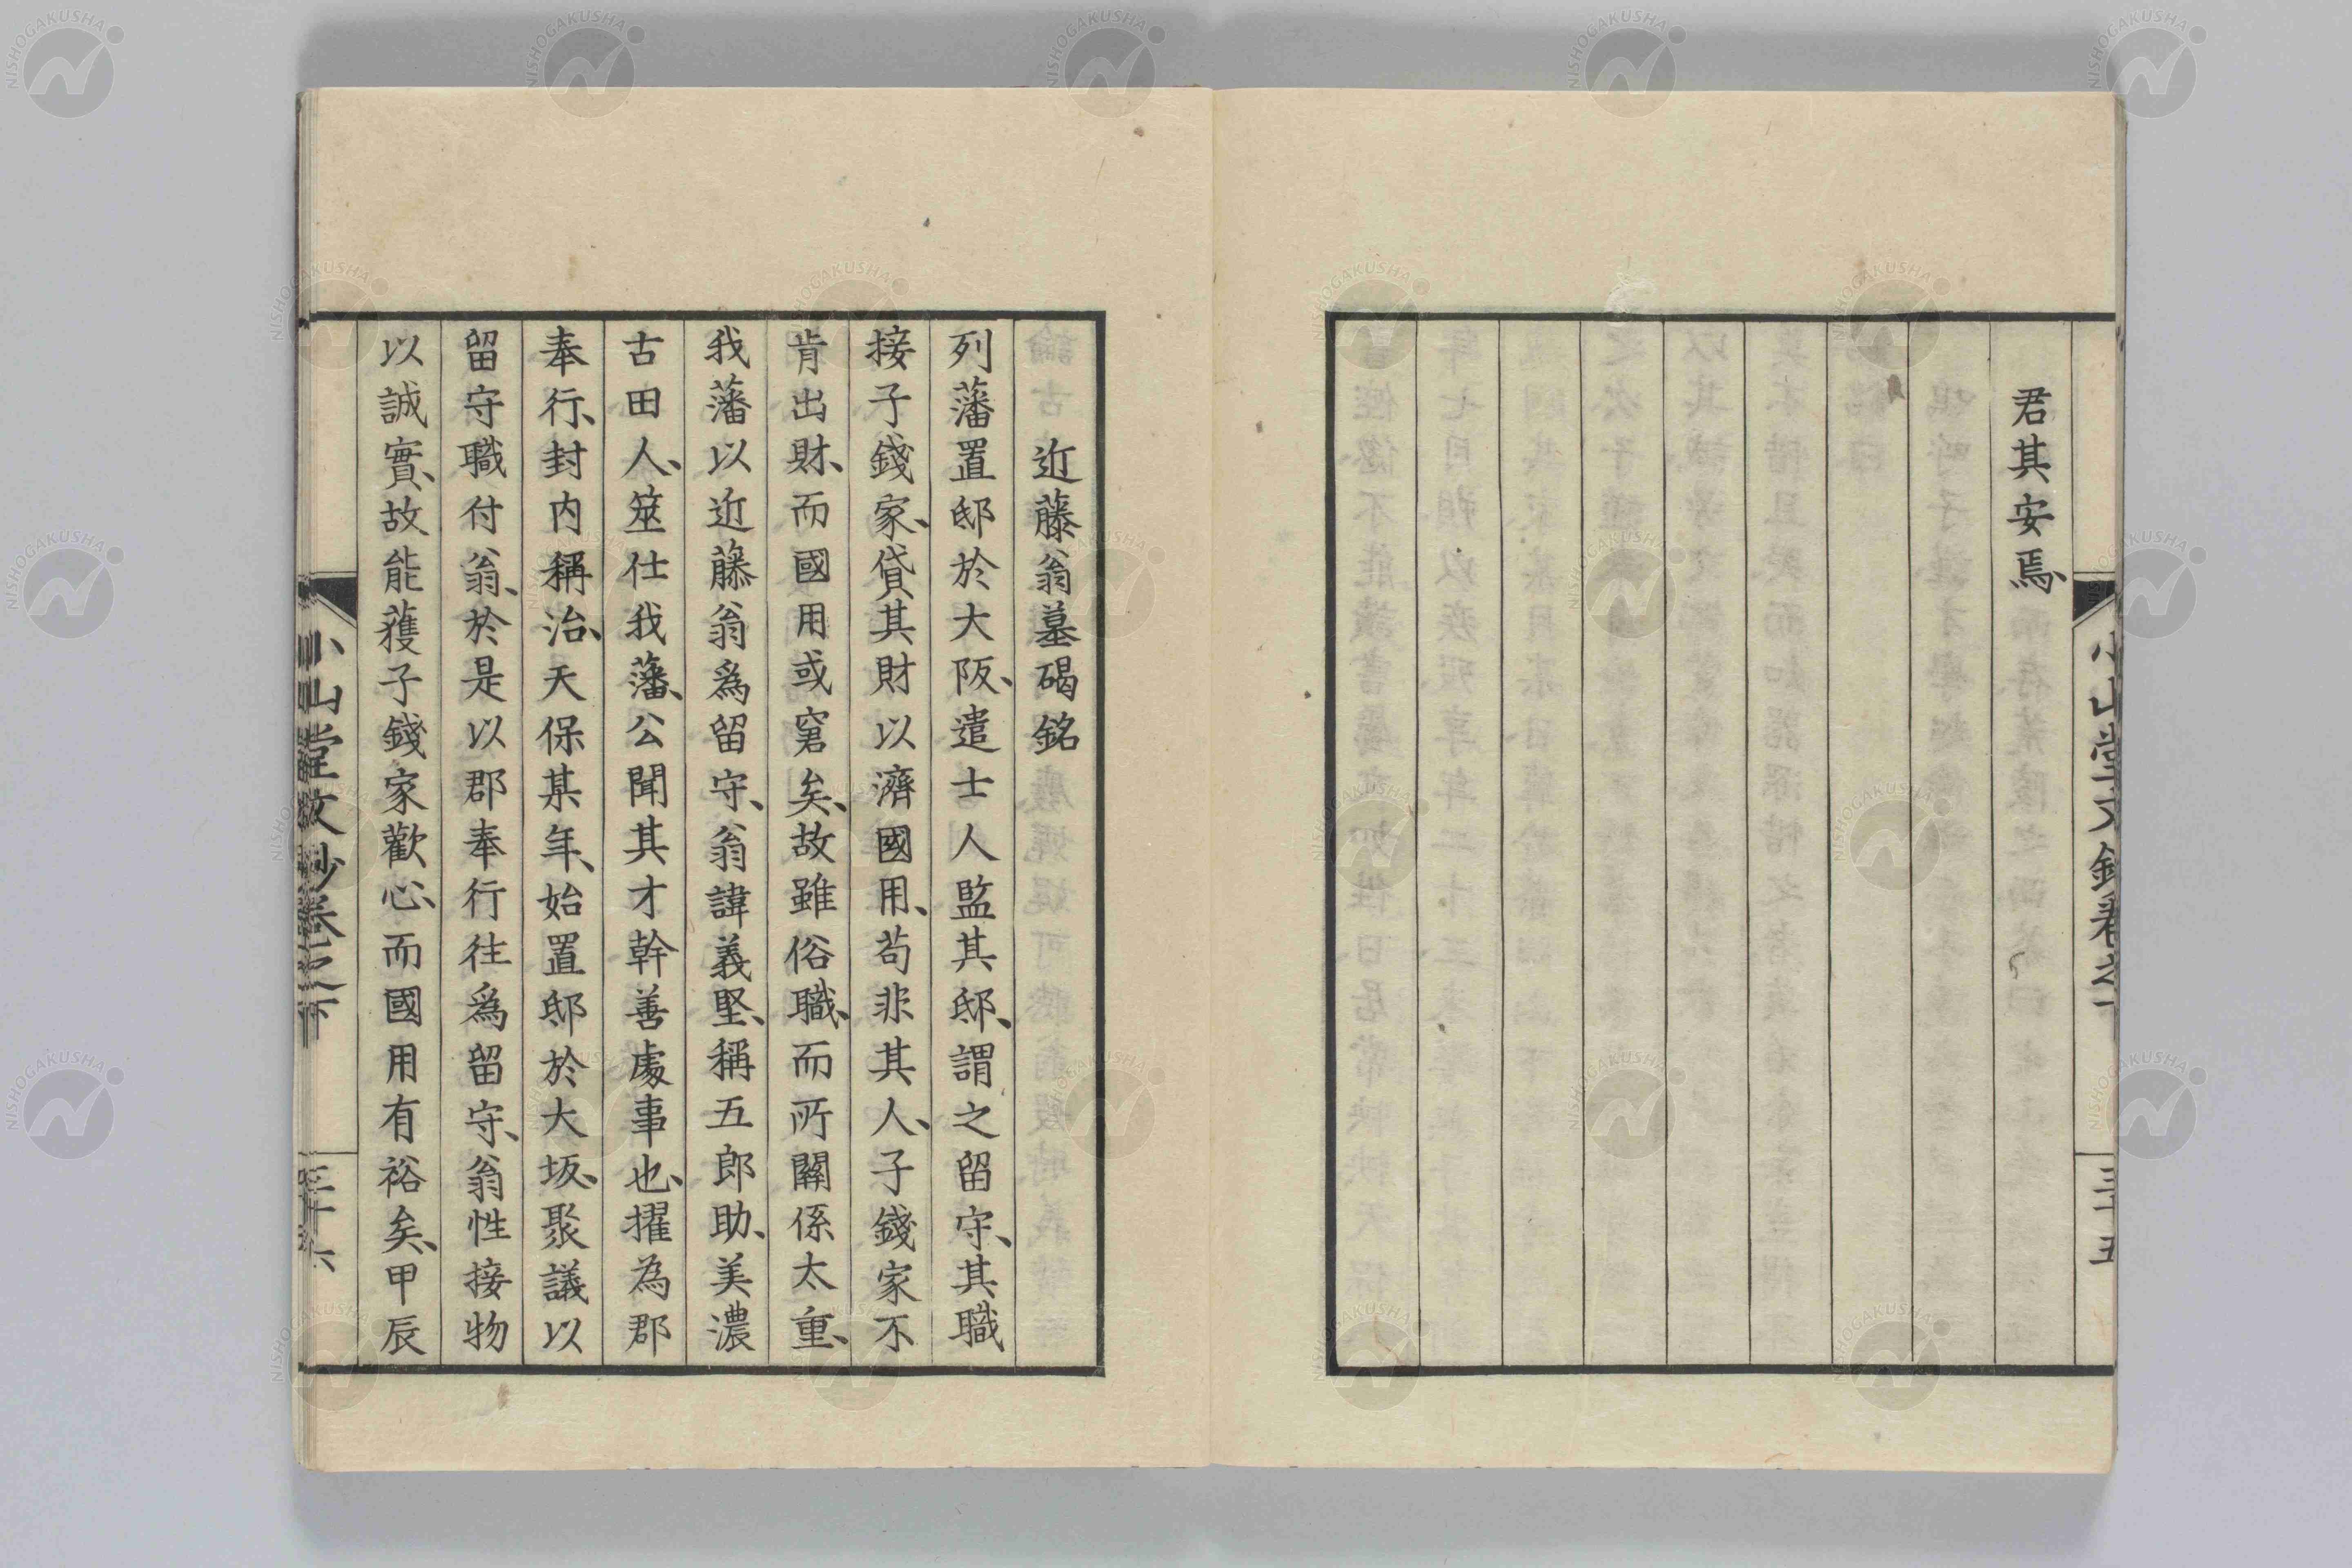 君其安焉、
小山堂文鈔卷之下
三十五
近藤翁墓碣銘
列藩置邸於大阪、遣士人監其邸、謂之留守、其職
接子錢家、貸其財以濟國用、苟非其人、子錢家不
肯出財、而國用或窘矣、故雖俗職、而所關係太重、
我藩以近藤翁爲留守、翁諱義堅、稱五郎助、美濃
古田人、筮仕我藩、公聞其才幹善處事也、擢為郡
奉行、封内稱治、天保某年、始置邸於大坂、聚議以
留守職付翁、於是以郡奉行往爲留守、翁性接物
以誠實、故能蒦子錢家歡心、而國用有裕矣、甲辰
小山堂文鈔卷之下
三十六
NISHOGAKUSHA